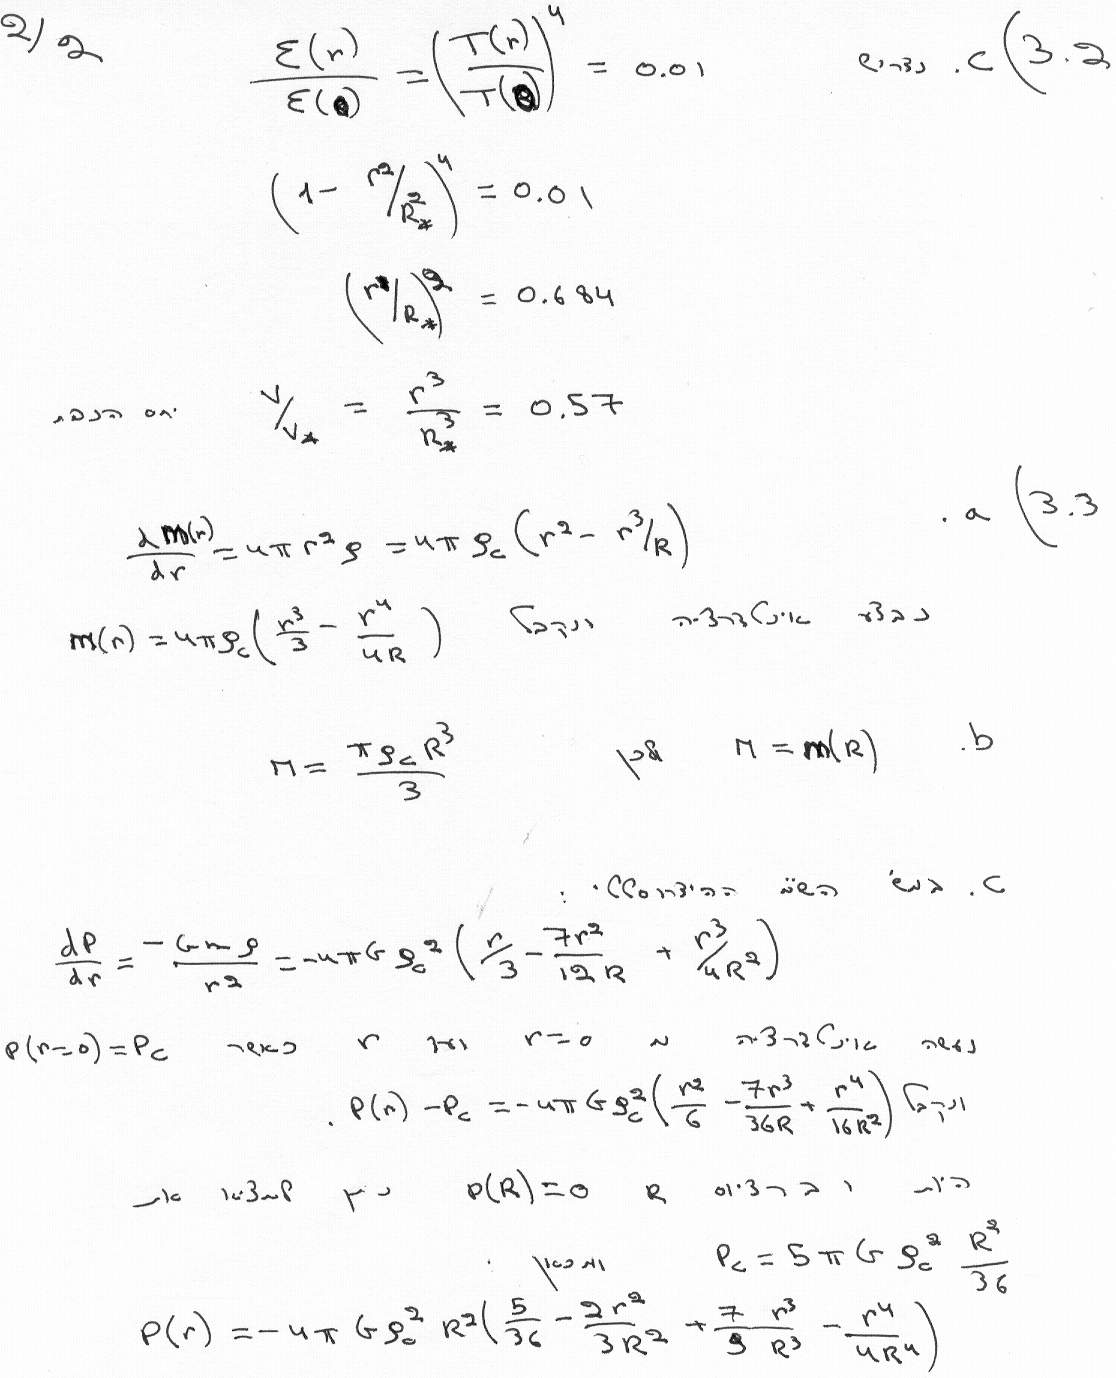 2/2
3.2) c. נדרוש ε(r)/ε(0) = (T(r)/T(0))^4 = 0.01
(1 - r²/R*²)^4 = 0.01
(r/R*)² = 0.684
V/V* = r³/R*³ = 0.57 יחס הנפח
3.3) a.
dm(r)/dr = 4πr²ρ = 4πρc(r² - r³/R)
נבצע אינטגרציה ונקבל
m(r) = 4πρc(r³/3 - r⁴/4R)
b. M = m(R) ולכן M = πρcR³/3
c. במש' השמ ההידרוסטטי:
dP/dr = -Gmρ/r² = -4πGρc²(r/3 - 7r²/12R + r³/4R²)
נעשה אינטגרציה מ r=0 ועד r כאשר P(r=0)=Pc
ונקבל P(r) - Pc = -4πGρc²(r²/6 - 7r³/36R + r⁴/16R²).
היות ו ברדיוס R P(R)=0 ניתן למצוא את
Pc = 5πGρc² R²/36 ומכאן:
P(r) = -4πGρc² R²(5/36 - 2r²/3R² + 7/9 r³/R³ - r⁴/4R⁴)